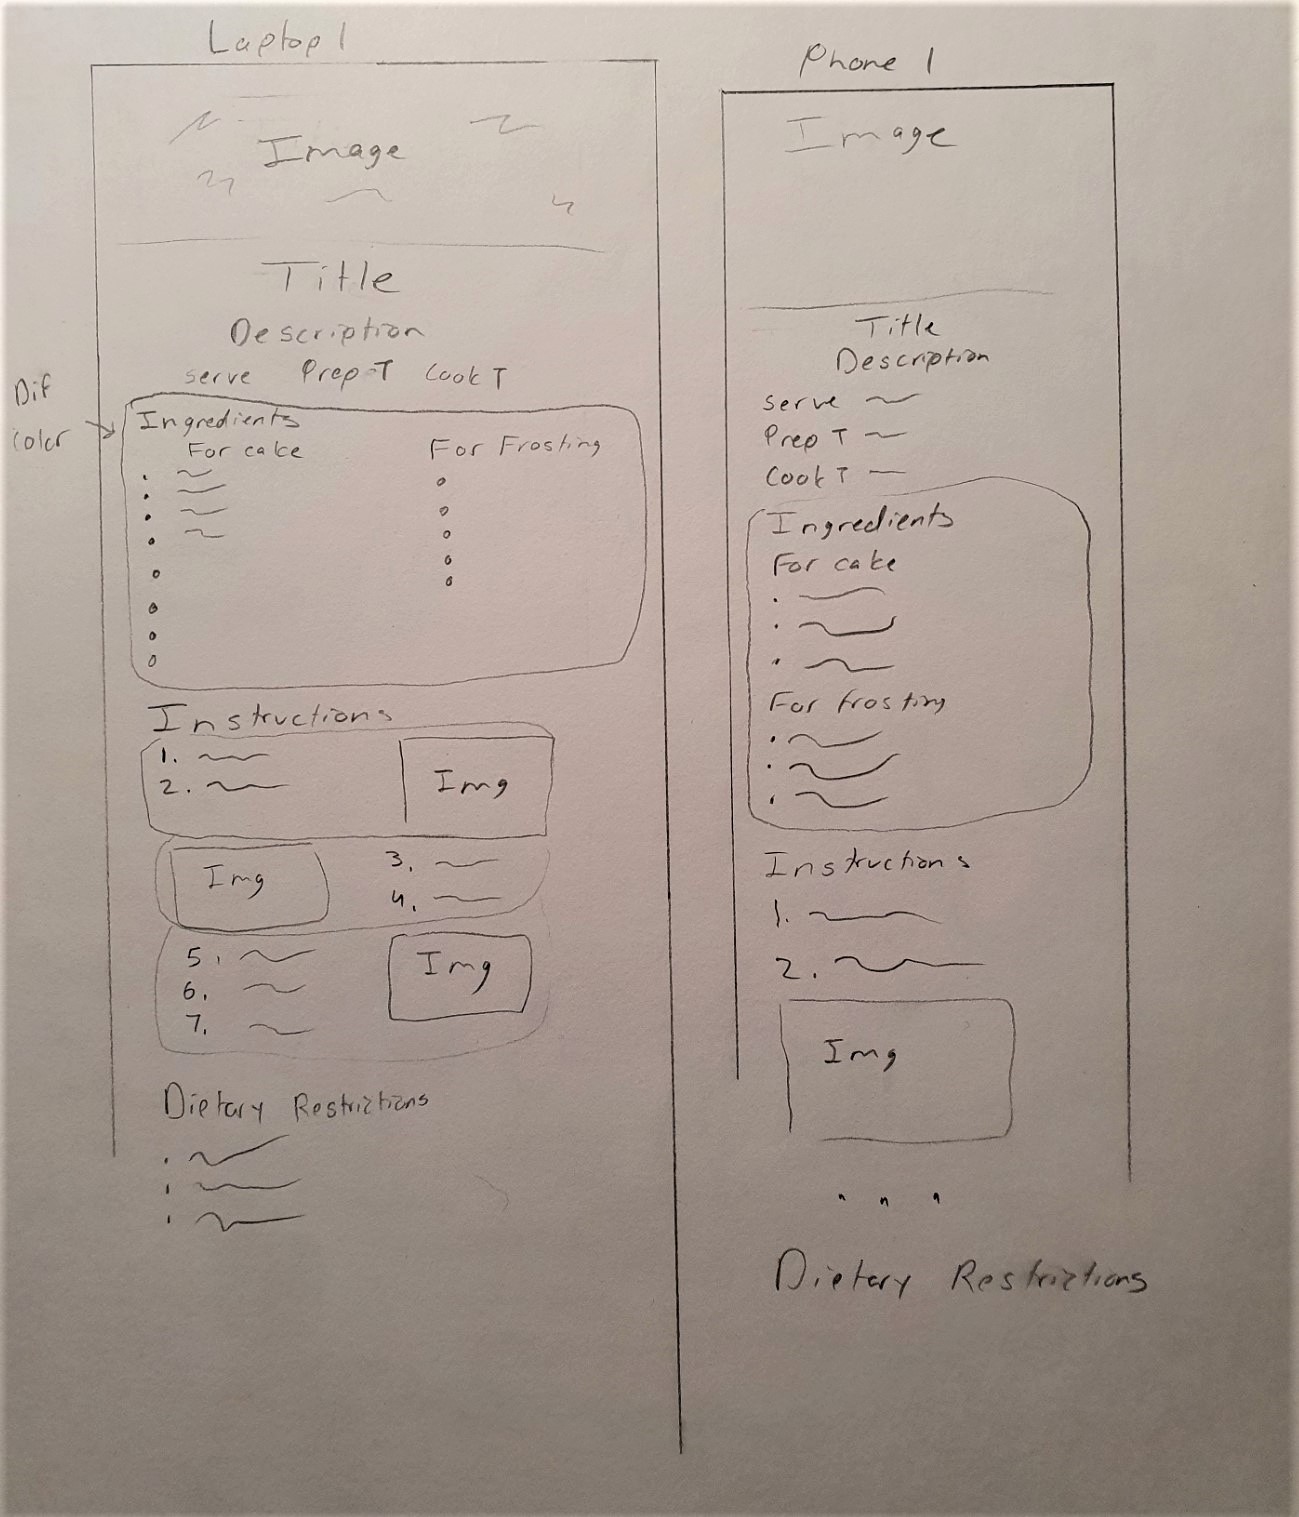 Laptop 1
Image
Title
Description
serve Prep-T Cook T
Dif
color
Ingredients
For cake
For Frosting
Instructions
1.
2.
Img
Img
3.
4.
5.
6.
7.
Img
Dietary Restrictions
Phone 1
Image
Title
Description
serve
Prep T
Cook T
Ingredients
For cake
For frosting
Instructions
1.
2.
Img
Dietary Restrictions